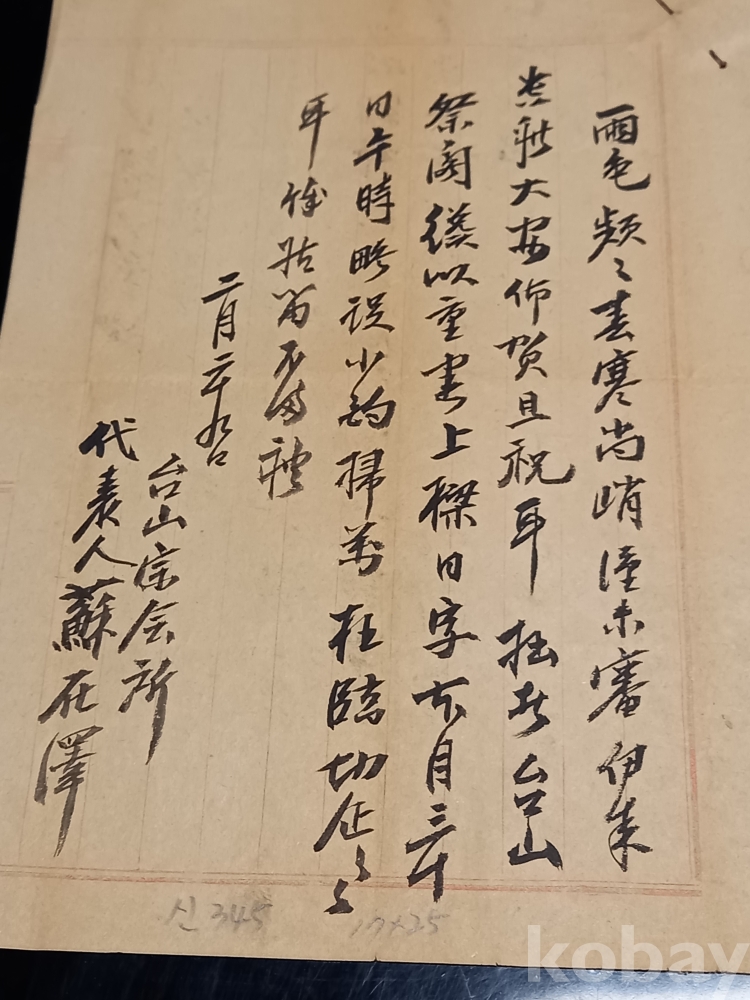 雨色頻々春寒尚峭謹未審伊來
大安仰賀且祝耳 台山
祭閣 以重書上樑日字 月三十
日午時略設小酌掃萬 枉臨切企々々
耳 備禮
二月二十九日
台山宗会所
代表人蘇在澤
신 345
17×25
kobay